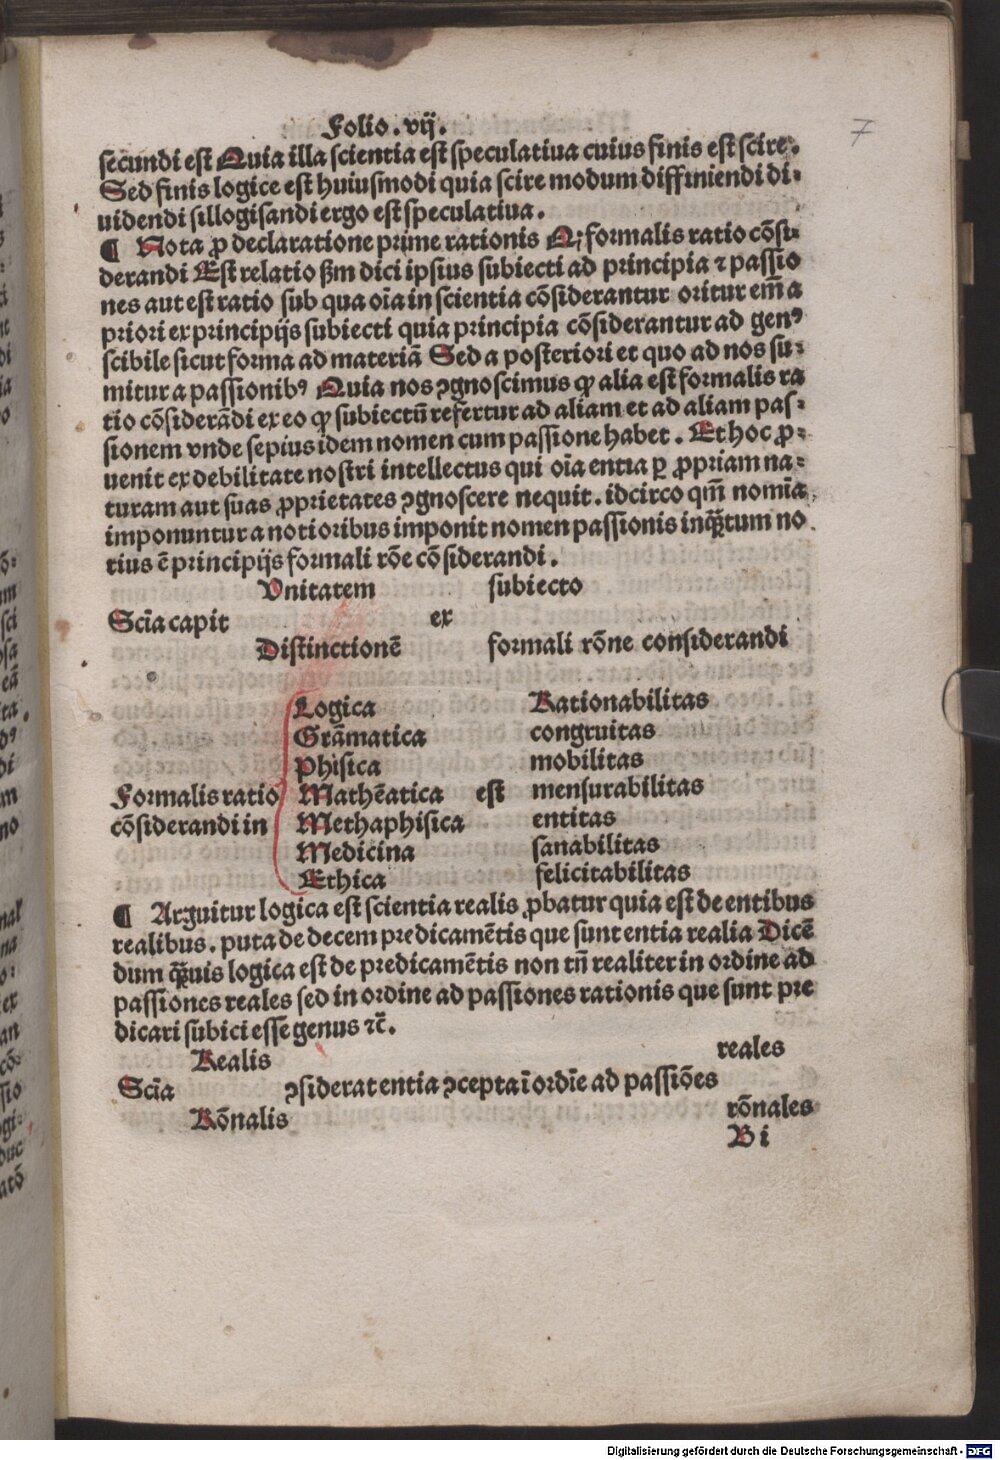 Folio. vij.
7
secundi est Quia illa scientia est speculatiua cuius finis est scire.
Sed finis logice est huiusmodi quia scire modum diffiniendi di-
uidendi sillogisandi ergo est speculatiua.
¶ Nota ꝓ declaratione prime rationis Qꝫ formalis ratio cõsi-
derandi Est relatio ẜm dici ipsius subiecti ad principia ⁊ passio
nes aut est ratio sub qua oĩa in scientia cõsiderantur oritur em̃ a
priori ex principijs subiecti quia principia cõsiderantur ad genꝰ
scibile sicut forma ad materiã Sed a posteriori et quo ad nos su-
mitur a passionibꝰ Quia nos ꝯgnoscimus ꝙ alia est formalis ra
tio cõsiderãdi ex eo ꝙ subiectũ refertur ad aliam et ad aliam pas-
sionem vnde sepius idem nomen cum passione habet. Et hoc ꝓ-
uenit ex debilitate nostri intellectus qui oĩa entia ꝑ ꝓpriam na-
turam aut suas ꝓprietates ꝯgnoscere nequit. idcirco qm̃ nomĩa
imponuntur a notioribus imponit nomen passionis inqꝫtum no
tius ẽ principijs formali rõe cõsiderandi.
Vnitatem subiecto
Scĩa capit ex
Distinctionẽ formali rõne considerandi
Logica Rationabilitas
Grãmatica congruitas
Phisica mobilitas
Formalis ratio Mathẽatica est mensurabilitas
cõsiderandi in Methaphisica entitas
Medicina sanabilitas
Ethica felicitabilitas
¶ Arguitur logica est scientia realis ꝓbatur quia est de entibus
realibus. puta de decem predicamẽtis que sunt entia realia Dicẽ
dum qꝫuis logica est de predicamẽtis non tñ realiter in ordine ad
passiones reales sed in ordine ad passiones rationis que sunt pre
dicari subici esse genus ⁊c̃.
Realis reales
Scĩa ꝯsiderat entia ꝯcepta ĩ ordĩe ad passiões
Rõnalis rõnales
B i
Digitalisierung gefördert durch die Deutsche Forschungsgemeinschaft - DFG